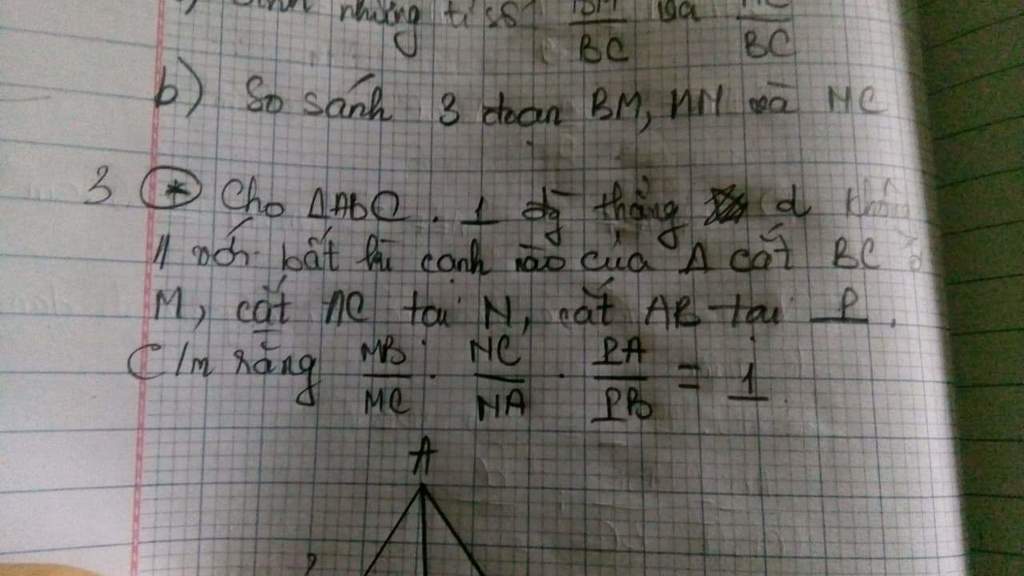 những tỉ số BM/BC và MC/BC
b) So sánh 3 đoạn BM, MN và NC
3 * Cho ΔABC. 1 đg̃ thẳng d không
// với bất kì cạnh nào của Δ cắt BC ở
M, cắt AC tại N, cắt AB tại P.
C/m rằng MB/MC . NC/NA . PA/PB = 1
A